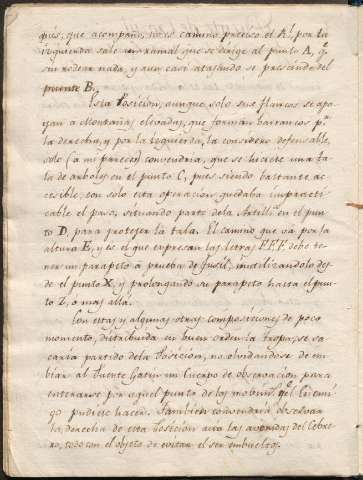 pues, que acompaño, no es camino preciso el A! por la
izquierda sale un ramal que se dirige al punto A, q.e
sin rodear nada, y aun casi atajando se prescinde del
puente B.
Esta Posición, aunque solo sus flancos se apo-
yan a Montañas elevadas, que forman barrancos p.r
la derecha, y por la izquierda, la considero defensable,
solo (a mi parecer) convendria, que se hiciese una ta-
la de arboles en el punto C, pues siendo bastante ac-
cesible, con solo esta operacion quedaba impracti-
cable el paso, situando parte dela Artill.a en el pun
to D, para protejer la tala. El camino que va por la
altura E, y es el que expresan las letras F.F.F. debe te-
ner un parapeto à prueba de fusil, inutilizandolo des-
de el punto X, y prolongando su parapeto hasta el pun-
to Z, o mas allá.
Con estas y algunas otras composiciones de poco
momento, distribuida en buen orden la tropa, se sa-
caria partido dela Posicion, no olvidandose de em-
biar al Puente Gatru un Cuerpo de observacion para
enterarse por aquel punto de los movim.tos q.e el Enemi-
go pudiese hacer. Tambien convendria observar
la, derecha de esta Posición acia las avenidas del Cebre-
ro, todo con el objeto de evitar el ser embueltos.